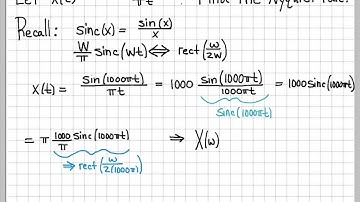 Let x(t) πt . Find the Nyquist rate.
Recall: sinc(x) = sin(x)/x
W/π sinc(Wt) ⟺ rect(ω/2W)
x(t) = sin(1000πt)/πt = 1000 sin(1000πt)/1000πt = 1000 sinc(1000πt)
sinc(1000πt)
= π 1000/π sinc(1000πt) ⇒ X(ω)
⇒ rect(ω/2(1000π))